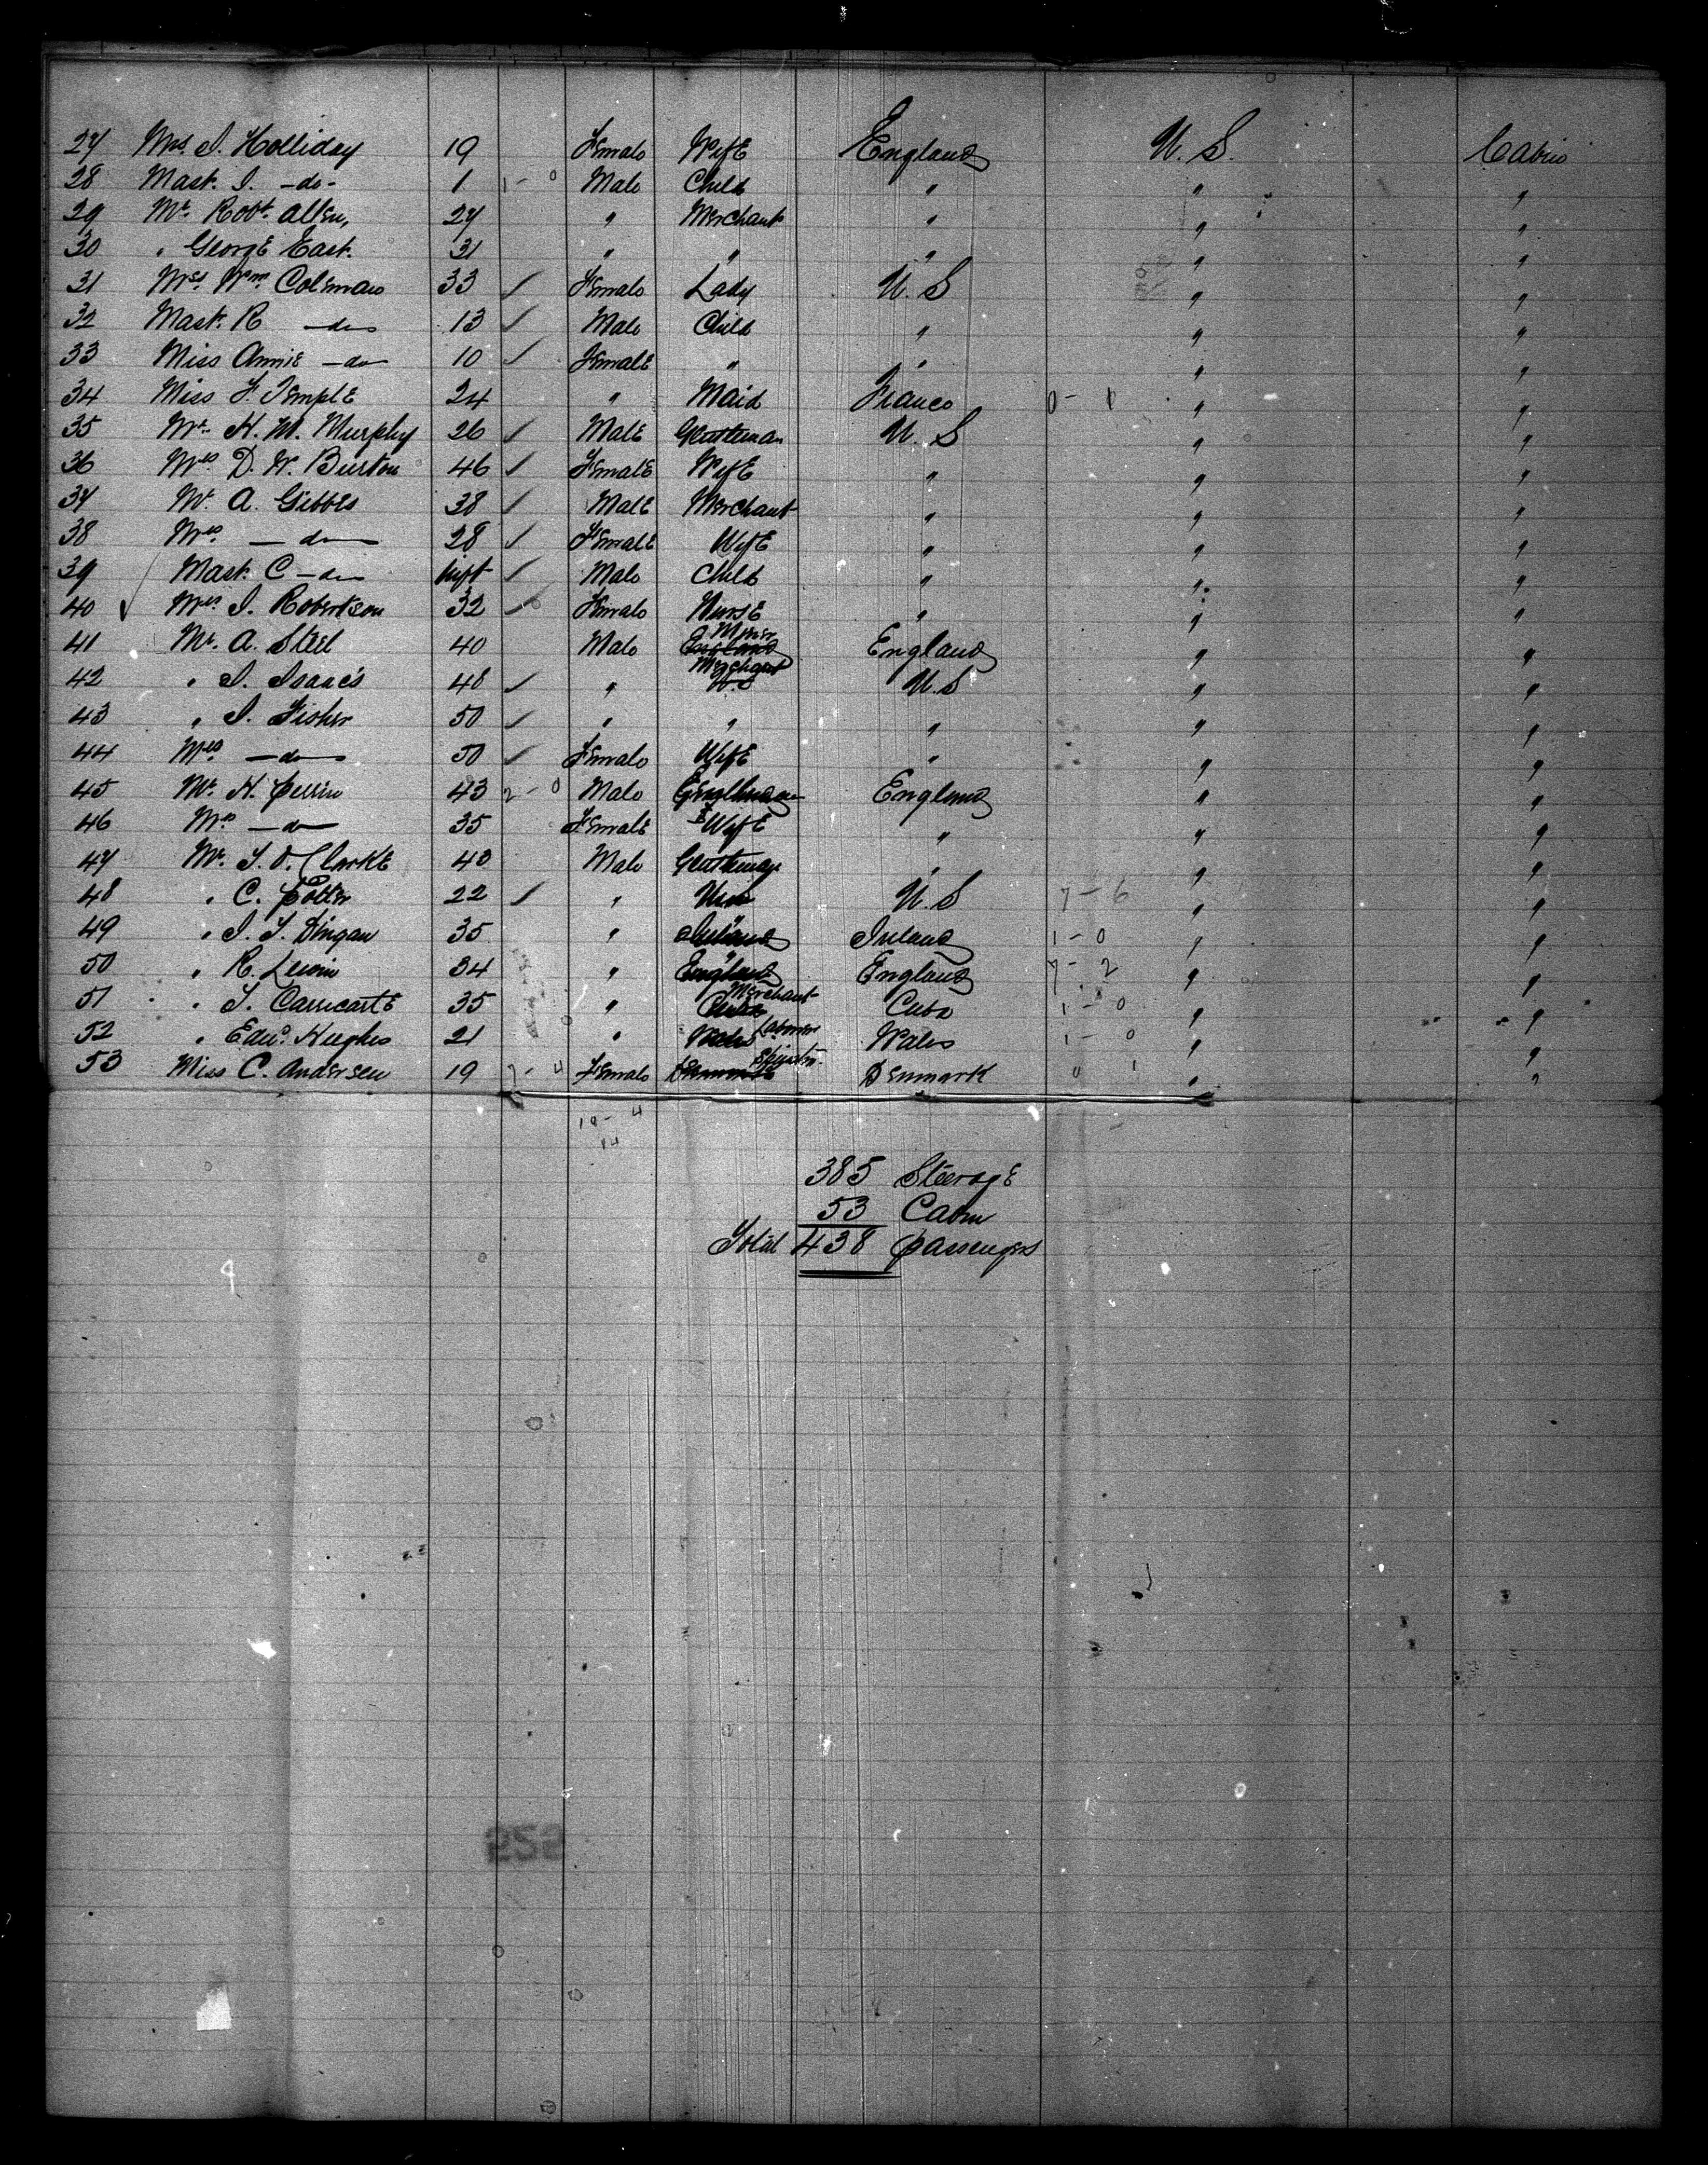 27 Mrs. I. Holliday 19 Female Wife England U. S. Cabin
28 Mast. I. -do- 1 1-0 Male Child " " "
29 Mr. Robt. Allen, 27 " Merchant " " "
30 " George East. 31 " " " " "
31 Mrs. Wm. Coleman 33 ✓ Female Lady U. S " "
32 Mast. R -do- 13 ✓ Male Child " " "
33 Miss Annie -do- 10 ✓ Female " " " "
34 Miss F. Temple 24 " Maid France 0-1 " "
35 Mr. H. M. Murphy 26 ✓ Male Gentleman U. S " "
36 Mrs D. W. Burton 46 ✓ Female Wife " " "
37 Mr. A. Gibbes 38 ✓ Male Merchant " " "
38 Mrs. -do- 28 ✓ Female Wife " " "
39 Mast. C -do- Inft ✓ Male Child " " "
40 ✓ Mrs. I. Robertson 32 ✓ Female Nurse " " "
41 Mr. A. Steel 40 Male England Miner England " "
42 " I. Isaacs 48 ✓ " U.S Merchant U. S " "
43 " I. Fisher 50 ✓ " " " " "
44 Mrs. -do- 50 ✓ Female Wife " " "
45 Mr. H. Perrin 43 2-0 Male Gentleman England " "
46 Mrs -do- 35 Female Wife " " "
47 Mr. T. O. Clarke 43 Male Gentleman " " "
48 " C. Potter 22 ✓ " U. S 7-6 " "
49 " I. T. Dingan 35 " Ireland Ireland 1-0 " "
50 " R. Lewin 34 " England England 7-2 " "
51 " T. Carricarte 35 " Cuba Merchant Cuba 1-0 " "
52 " Edwd. Hughes 21 " Wales Laborer Wales 1-0 " "
53 Miss C. Andersen 19 7-4 Female Denmark Spinster Denmark 0 1 " "
10-4
14
385 Steerage
53 Cabin
Total 438 passengers
252